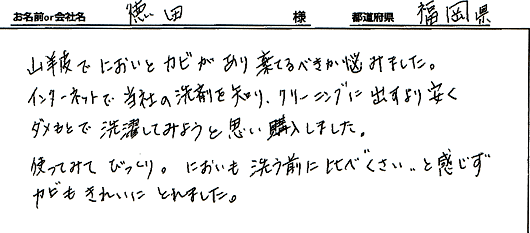 お名前or会社名 徳田 様 都道府県 福岡県
山羊皮でにおいとカビがあり棄てるべきか悩みました。
インターネットで当社の洗剤を知り、クリーニングに出すより安く
ダメもとで洗濯してみようと思い購入しました。
使ってみてびっくり。においも洗う前に比べ"くさい"と感じず
カビもきれいにとれました。